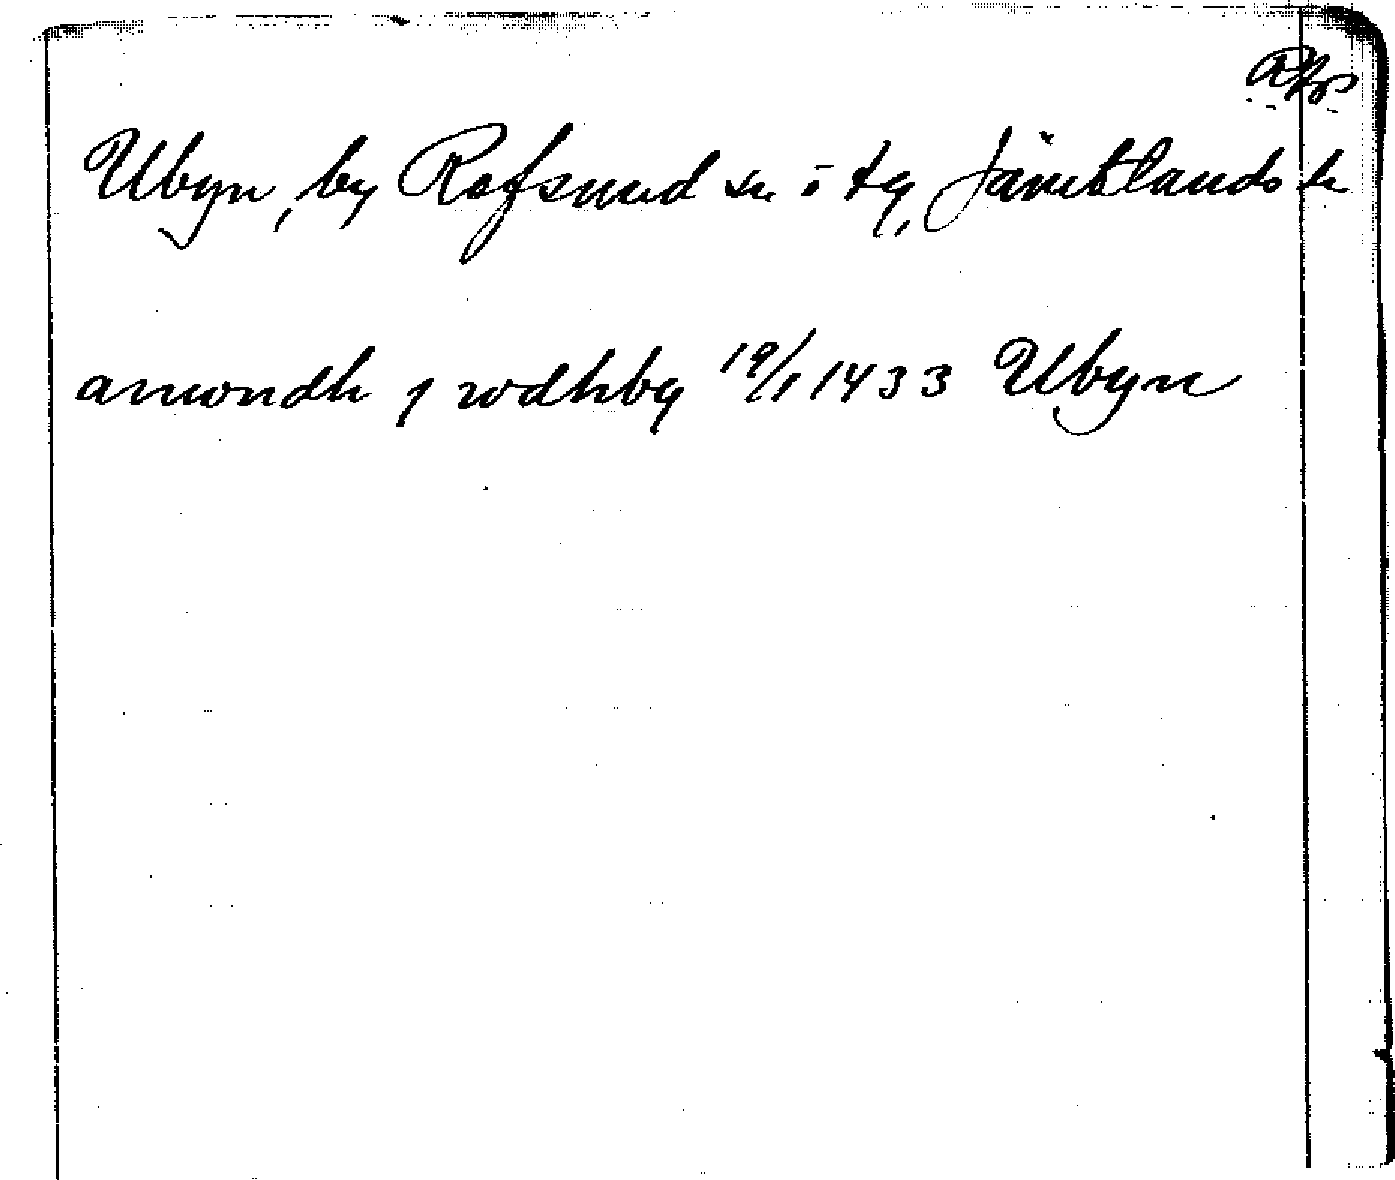 Ubyn, by Rafsund sn i tg, Jämtlands ln
amondh j rodhby 19/1 1433 Ubyn